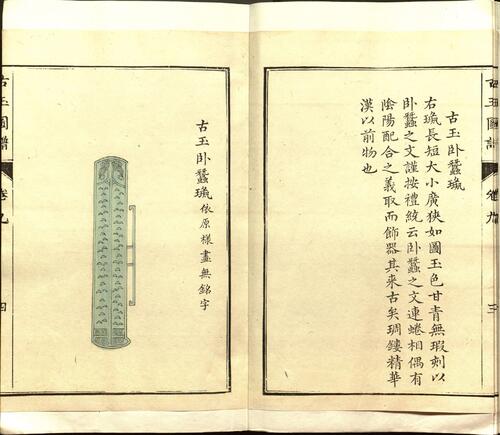 古玉圖譜
卷九
三
古玉卧蠶璏
右璏長短大小廣狹如圖玉色甘青無瑕刻以
卧蠶之文謹按禮統云卧蠶之文連蜷相偶有
陰陽配合之義取而飾器其來古矣琱鏤精華
漢以前物也
古玉卧蠶璏依原樣畫無銘字
古玉圖譜
卷九
四